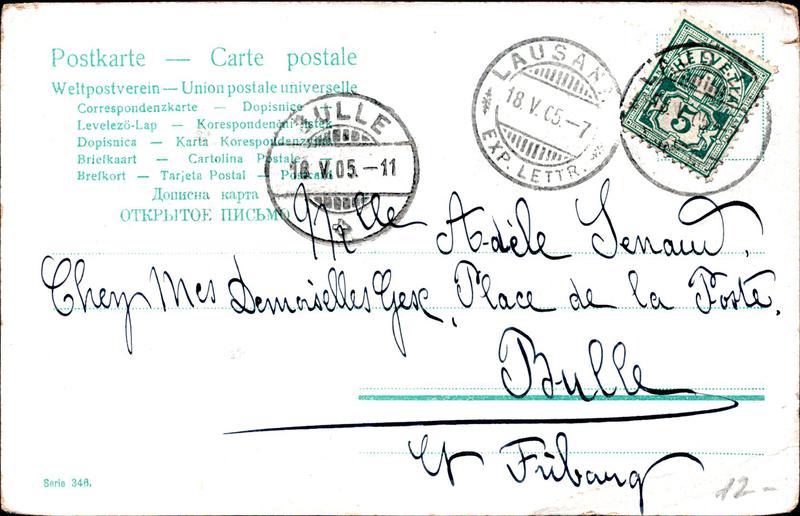 Postkarte — Carte postale
Weltpostverein — Union postale universelle
Correspondenzkarte — Dopisnice —
Levelező-Lap — Korespondenční lístek
Dopisnica — Karta Korespondenzyjna
Briefkaart — Cartolina Postale —
Brefkort — Tarjeta Postal — Postkaart
Дописна карта
ОТКРЫТОЕ ПИСЬМО
BULLE
18.V.05.-11
LAUSANNE
18.V.05.-7
EXP. LETTR.
HELVETIA
5
Mlle Adèle
Chez Mes Demoiselles Gex, Place de la Poste,
Bulle
Ct Fribourg
Serie 346.
12-